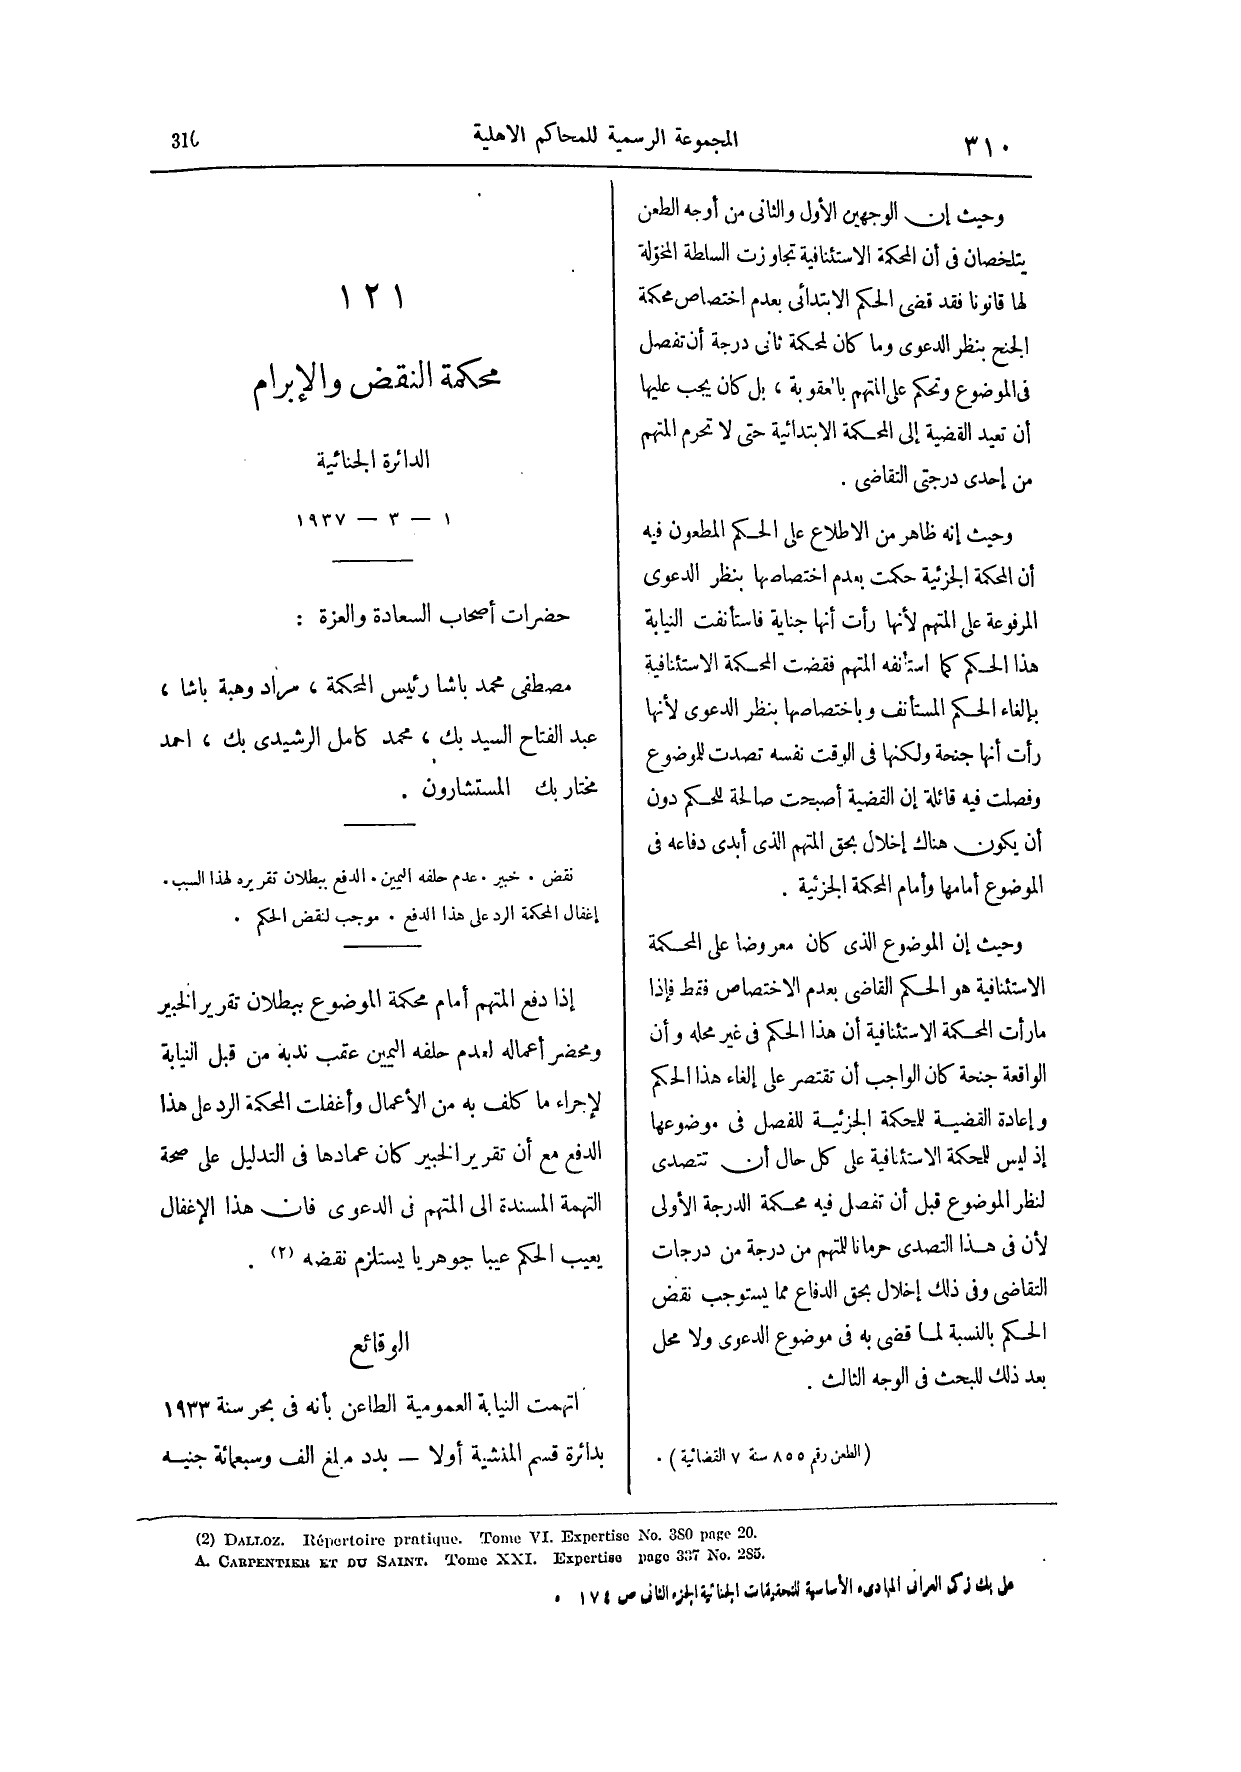 ٣١٠
المجموعة الرسمية للمحاكم الاهلية
310
وحيث إن الوجهين الأول والثانى من أوجه الطعن
يتلخصان فى أن المحكمة الاستئنافية تجاوزت السلطة المخوّلة
لها قانونا فقد قضى الحكم الابتدائى بعدم اختصاص محكمة
الجنح بنظر الدعوى وما كان لمحكمة ثانى درجة أن تفصل
فى الموضوع وتحكم على المتهم بالعقوبة ، بل كان يجب عليها
أن تعيد القضية إلى المحكمة الابتدائية حتى لا تحرم المتهم
من إحدى درجتى التقاضى .
وحيث إنه ظاهر من الاطلاع على الحكم المطعون فيه
أن المحكمة الجزئية حكمت بعدم اختصاصها بنظر الدعوى
المرفوعة على المتهم لأنها رأت أنها جناية فاستأنفت النيابة
هذا الحكم كما استأنفه المتهم فقضت المحكمة الاستئنافية
بإلغاء الحكم المستأنف وباختصاصها بنظر الدعوى لأنها
رأت أنها جنحة ولكنها فى الوقت نفسه تصدت للموضوع
وفصلت فيه قائلة إن القضية أصبحت صالحة للحكم دون
أن يكون هناك إخلال بحق المتهم الذى أبدى دفاعه فى
الموضوع أمامها وأمام المحكمة الجزئية .
وحيث إن الموضوع الذى كان معروضا على المحكمة
الاستئنافية هو الحكم القاضى بعدم الاختصاص فقط فإذا
مارأت المحكمة الاستئنافية أن هذا الحكم فى غير محله وأن
الواقعة جنحة كان الواجب أن تقتصر على إلغاء هذا الحكم
وإعادة القضية للمحكمة الجزئية للفصل فى موضوعها
إذ ليس للمحكمة الاستئنافية على كل حال أن تتصدى
لنظر الموضوع قبل أن تفصل فيه محكمة الدرجة الأولى
لأن فى هذا التصدى حرمانا للمتهم من درجة من درجات
التقاضى وفى ذلك إخلال بحق الدفاع مما يستوجب نقض
الحكم بالنسبة لما قضى به فى موضوع الدعوى ولا محل
بعد ذلك للبحث فى الوجه الثالث .
(الطعن رقم ٨٥٥ سنة ٧ القضائية) .
١٢١
محكمة النقض والإبرام
الدائرة الجنائية
١ — ٣ — ١٩٣٧
حضرات أصحاب السعادة والعزة :
مصطفى محمد باشا رئيس المحكمة ، مراد وهبة باشا ،
عبد الفتاح السيد بك ، محمد كامل الرشيدى بك ، احمد
مختار بك المستشارون .
نقض . خبير . عدم حلفه اليمين . الدفع ببطلان تقريره لهذا السبب .
إغفال المحكمة الرد على هذا الدفع . موجب لنقض الحكم .
إذا دفع المتهم أمام محكمة الموضوع ببطلان تقرير الخبير
ومحضر أعماله لعدم حلفه اليمين عقب ندبه من قبل النيابة
لإجراء ما كلف به من الأعمال وأغفلت المحكمة الرد على هذا
الدفع مع أن تقرير الخبير كان عمادها فى التدليل على صحة
التهمة المسندة الى المتهم فى الدعوى فان هذا الإغفال
يعيب الحكم عيبا جوهريا يستلزم نقضه (٢) .
الوقائع
اتهمت النيابة العمومية الطاعن بأنه فى بحر سنة ١٩٣٣
بدائرة قسم المنشية أولا — بدد مبلغ الف وسبعمائة جنيه
(2) DALLOZ. Répertoire pratique. Tome VI. Expertise No. 380 page 20.
A. CARPENTIER ET DU SAINT. Tome XXI. Expertise page 337 No. 285.
على بك زكى العرابى المبادىء الأساسية للتحقيقات الجنائية الجزء الثانى ص ١٧٤ .